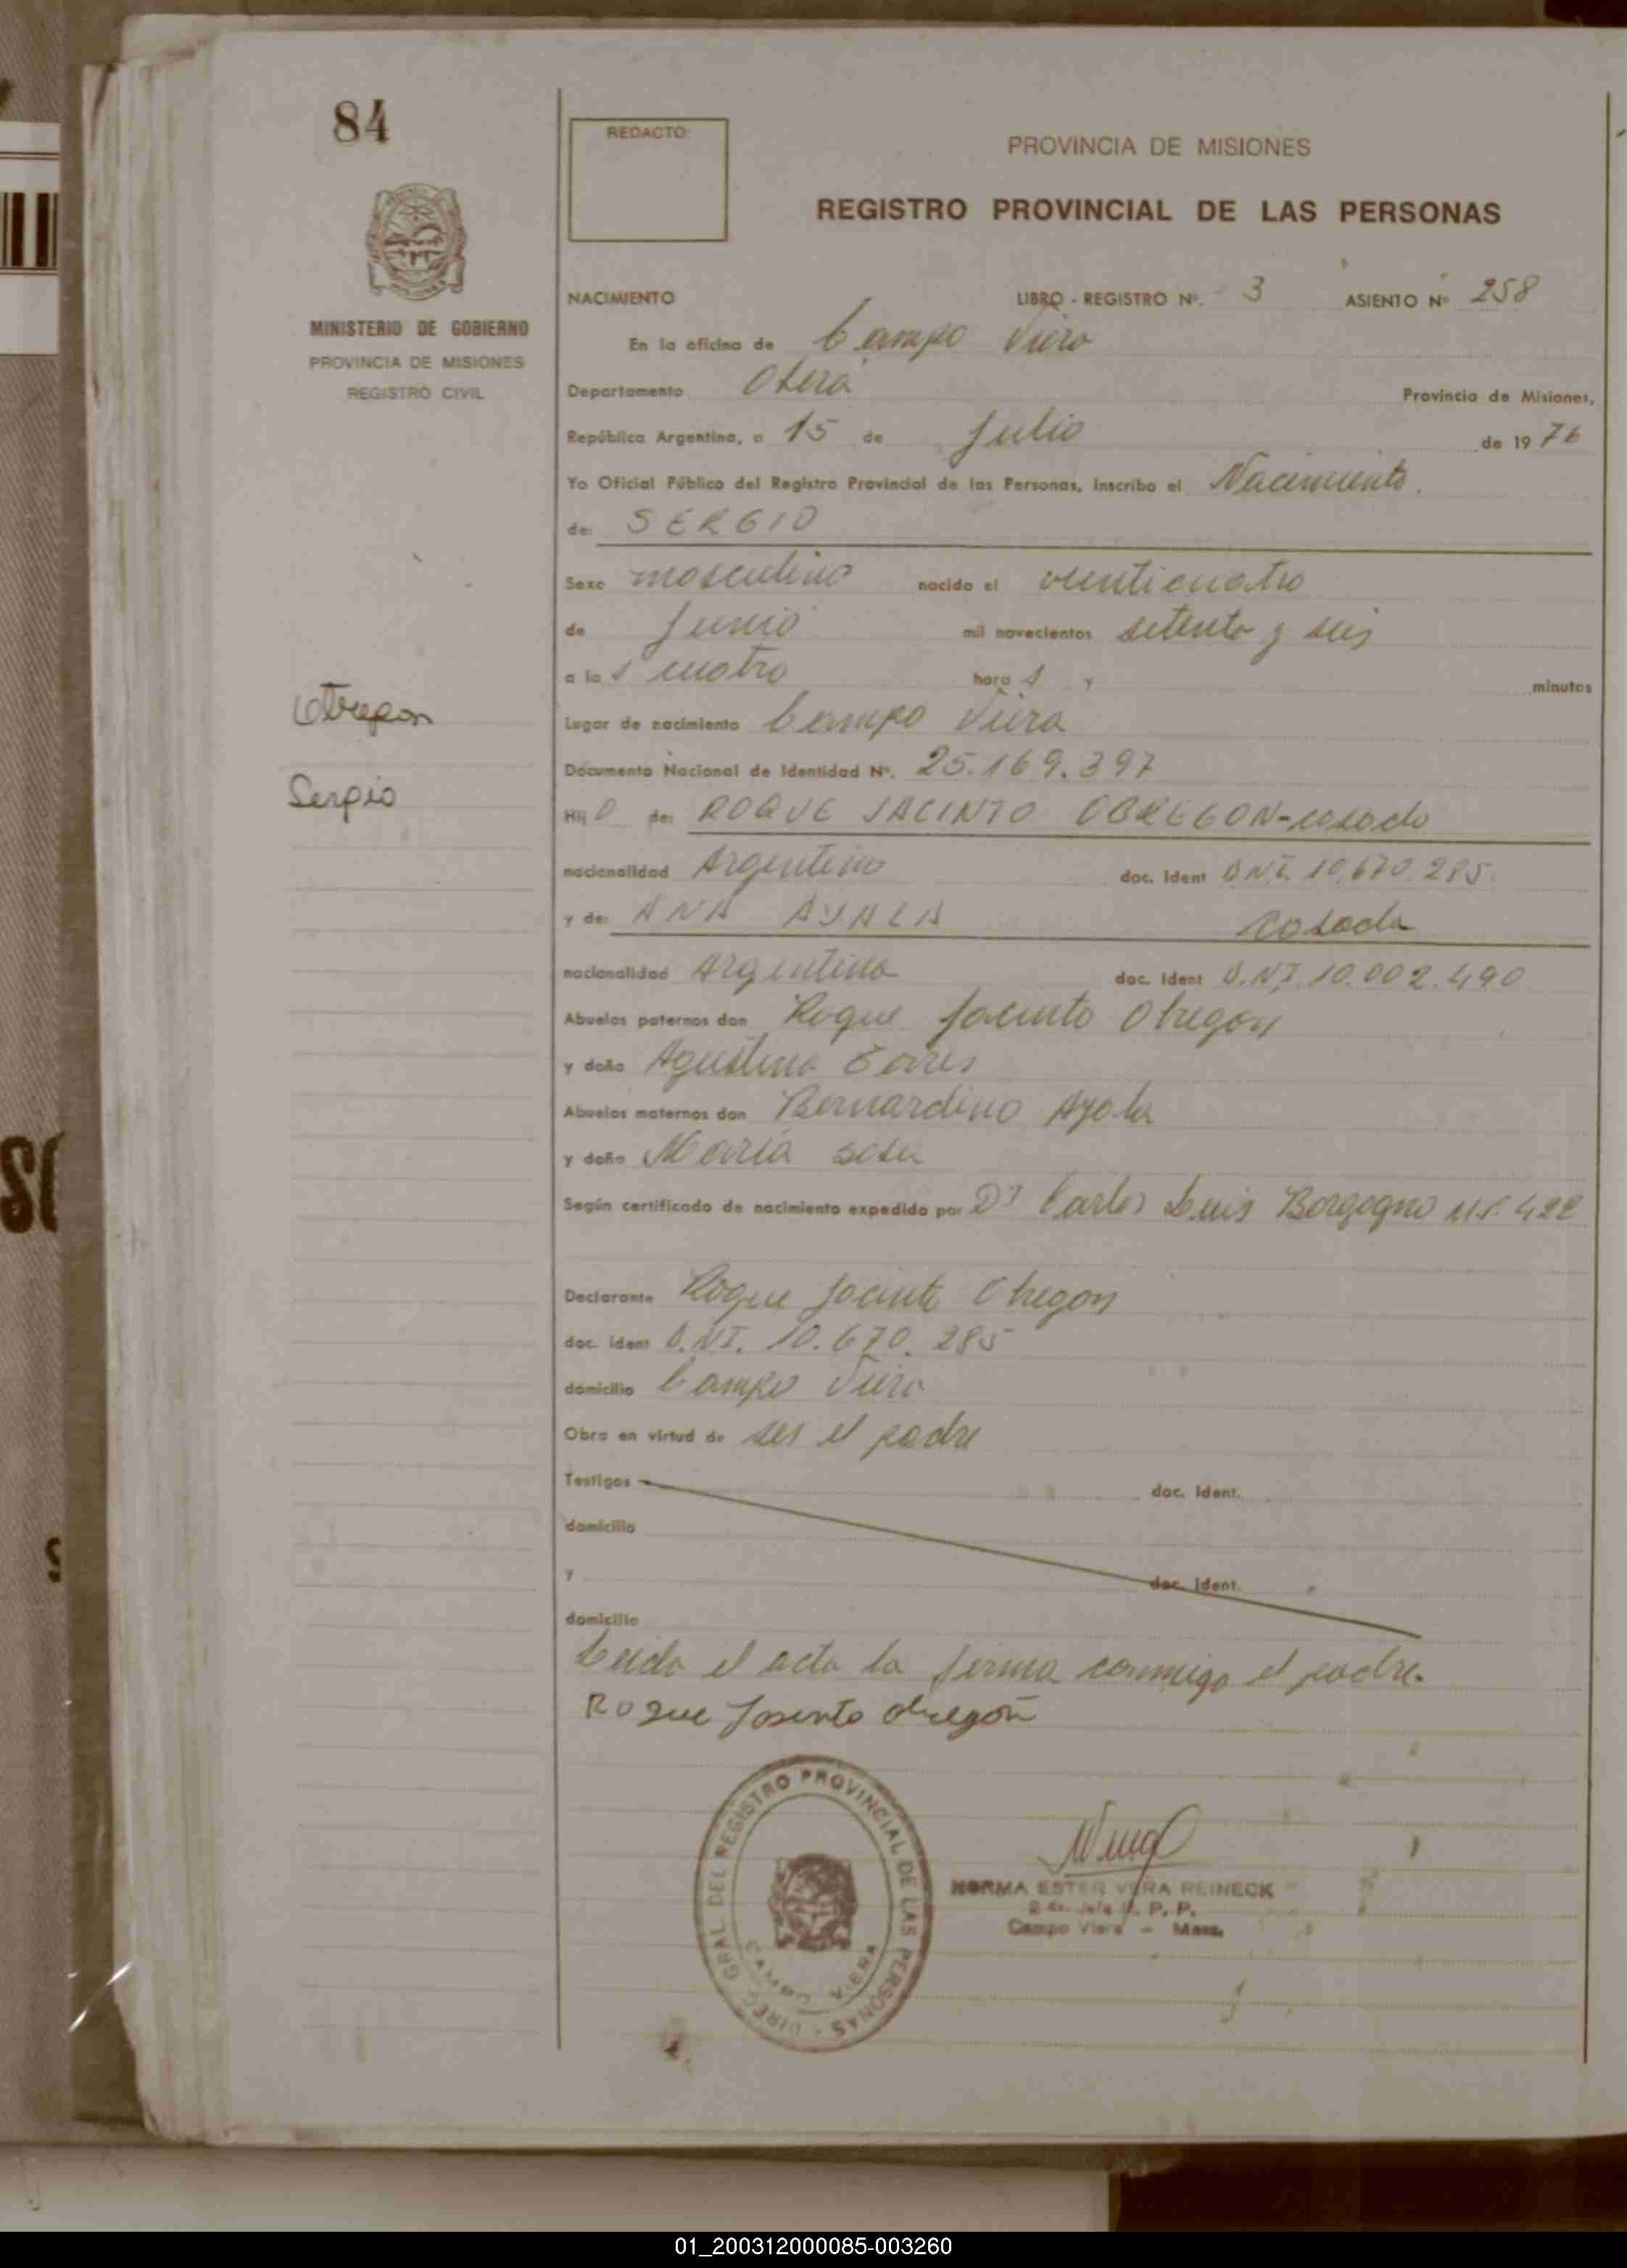 84
REDACTO:
PROVINCIA DE MISIONES
REGISTRO PROVINCIAL DE LAS PERSONAS
MINISTERIO DE GOBIERNO
PROVINCIA DE MISIONES
REGISTRO CIVIL
NACIMIENTO LIBRO - REGISTRO Nº. 3 ASIENTO Nº 258
En la oficina de Campo Viera
Departamento Oberá Provincia de Misiones,
República Argentina, a 15 de Julio de 1976
Yo Oficial Público del Registro Provincial de las Personas, inscribo el Nacimiento.
de: SERGIO
Sexo masculino nacido el veinticuatro
de Junio mil novecientos setenta y seis
a las cuatro horas y minutos
Obregon
Sergio
Lugar de nacimiento Campo Viera
Documento Nacional de Identidad Nº. 25.169.397
Hijo de: ROQUE JACINTO OBREGON-casado
nacionalidad Argentino doc. Ident D.N.I. 10.670.285.
y de: ANA AYALA casada
nacionalidad Argentina doc. Ident D.N.I. 10.002.490
Abuelos paternos don Roque Jacinto Obregon
y doña Agustina
Abuelos maternos don Bernardino Ayala
y doña María Sosa
Según certificado de nacimiento expedido por Dr Carlos Luis Borgogno M.P. 422
Declarante Roque Jacinto Obregon
doc. Ident D.NI. 10.670.285
domicilio Campo Viera
Obra en virtud de ser el padre
Testigos doc. Ident.
domicilio
y doc. Ident.
domicilio
Leida el acta la firma conmigo el padre.
Roque Josinto obregón
DIREC. GRAL DEL REGISTRO PROVINCIAL DE LAS PERSONAS -
CAMPO VIERA
NORMA ESTER VERA REINECK
Jefe R. P. P.
Campo Viera - Mnes.
01_200312000085-003260